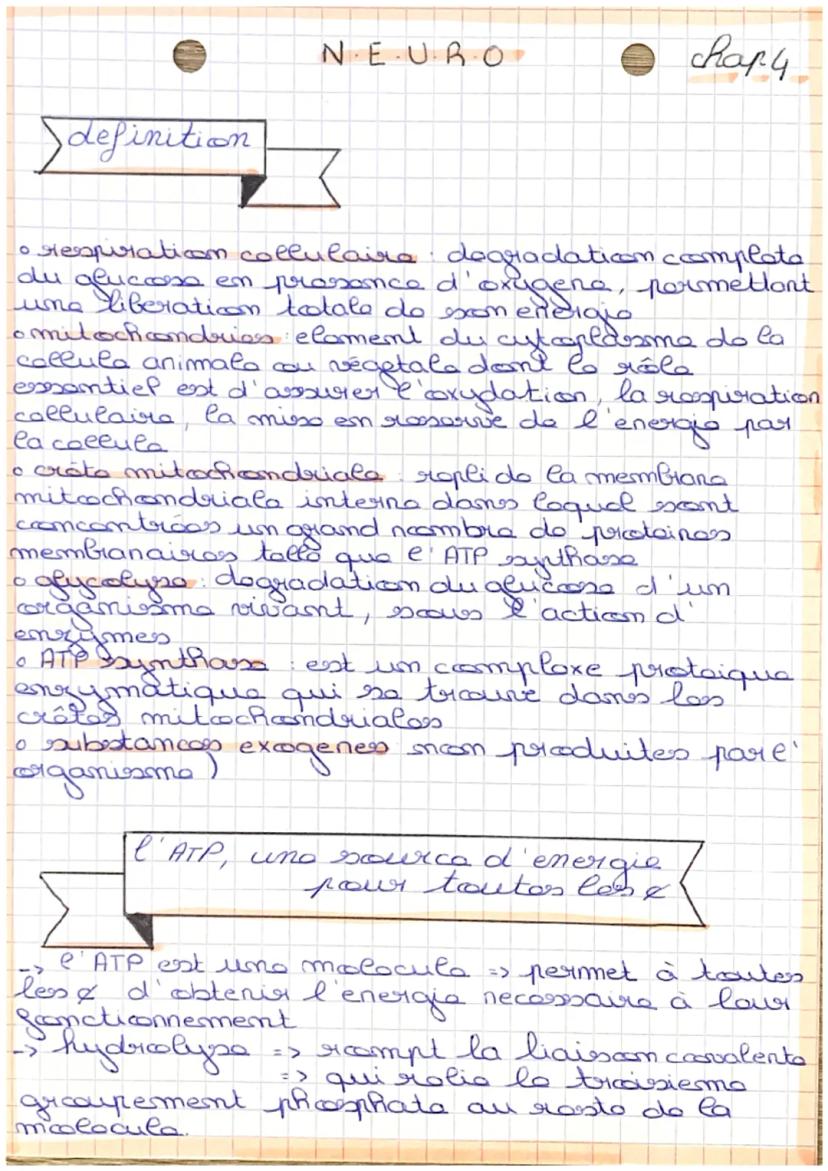 N.E.U.R.O
chap.4
definition
o respiration cellulaire : degradation complete
du glucose en presence d'oxygene, permettant
une liberation totale de son energie
o mitochondries : element du cytoplasme de la
cellule animale ou végetale dont le rôle
essentiel est d'assurer l'oxydation, la respiration
cellulaire, la mise en reserve de l'energie par
la cellule
o crête mitochondriale : repli de la membrane
mitochondriale interne dans lequel sont
concentrées un grand nombre de proteines
membranaires telle que l'ATP synthase
o glycolyse : degradation du glucose d'un
organisme vivant, sous l'action d'
enzymes
o ATP synthase : est un complexe proteique
enzymatique qui se trouve dans les
crêtes mitochondriales
o substances exogenes non produites par l'
organisme)
l'ATP, une source d'energie
pour toutes les ¢
-> l'ATP est une molecule => permet à toutes
les ¢ d'obtenir l'energie necessaire à leur
fonctionnement
-> hydrolyse => rompt la liaison covalente
=> qui relie le troisieme
groupement phosphate au reste de la
molecule.